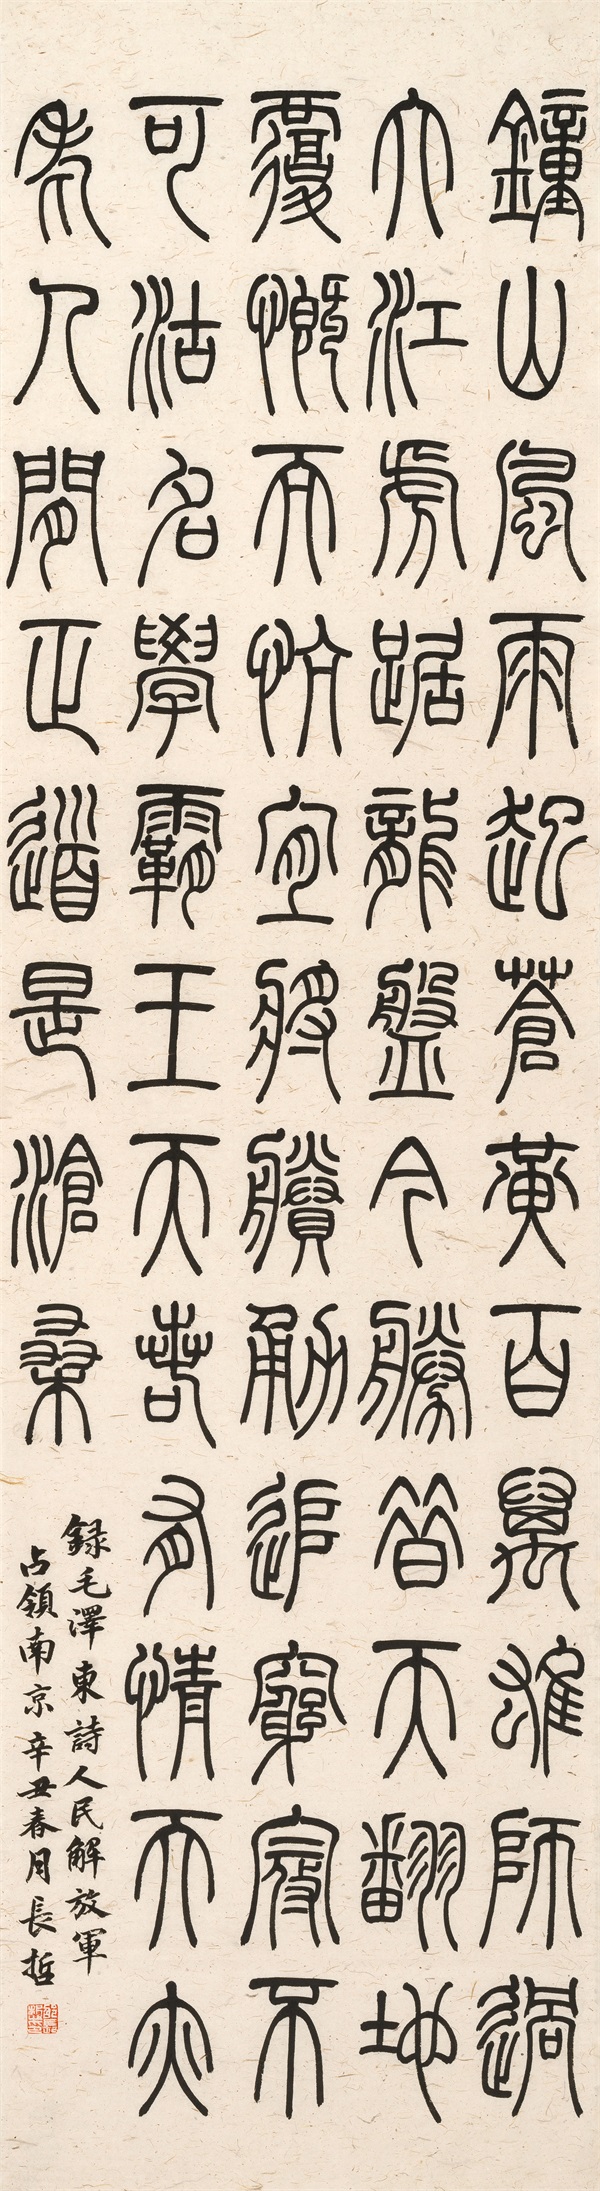 鐘山風雨起蒼黃百萬雄師過
大江虎踞龍盤今勝昔天翻地
覆慨而慷宜將賸勇追窮寇不
可沽名學霸王天若有情天亦
老人間正道是滄桑
錄毛澤東詩人民解放軍
占領南京辛丑春月長哲